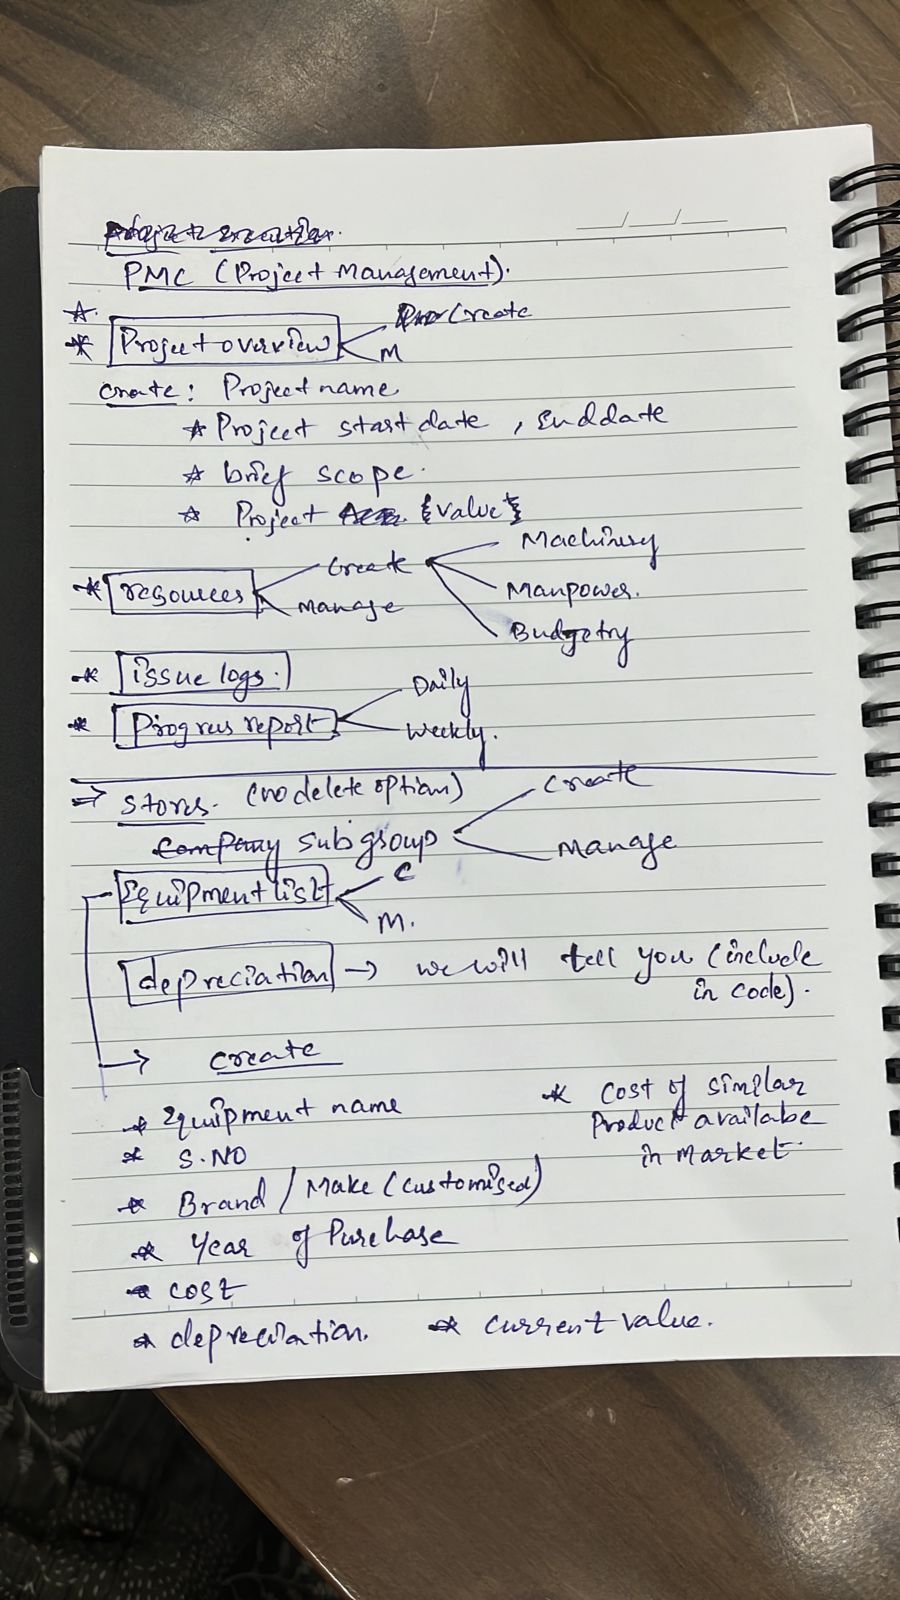 PMC (Project Management).
Project overview Create
M
Create: Project name
Project start date, End date
brief scope.
Project {value}
resources Create Machinery
manage Manpower.
Budgetry
issue logs.
Progress report Daily
Weekly.
Stores. (no delete option) Create
Company subgroup Manage
Equipment list C
M.
depreciation → we will tell you (include
in code).
→ Create
Equipment name
S.NO
Brand / Make (customised)
Year of Purchase
Cost
depreciation.
Cost of similar
Product availabe
in market.
current value.